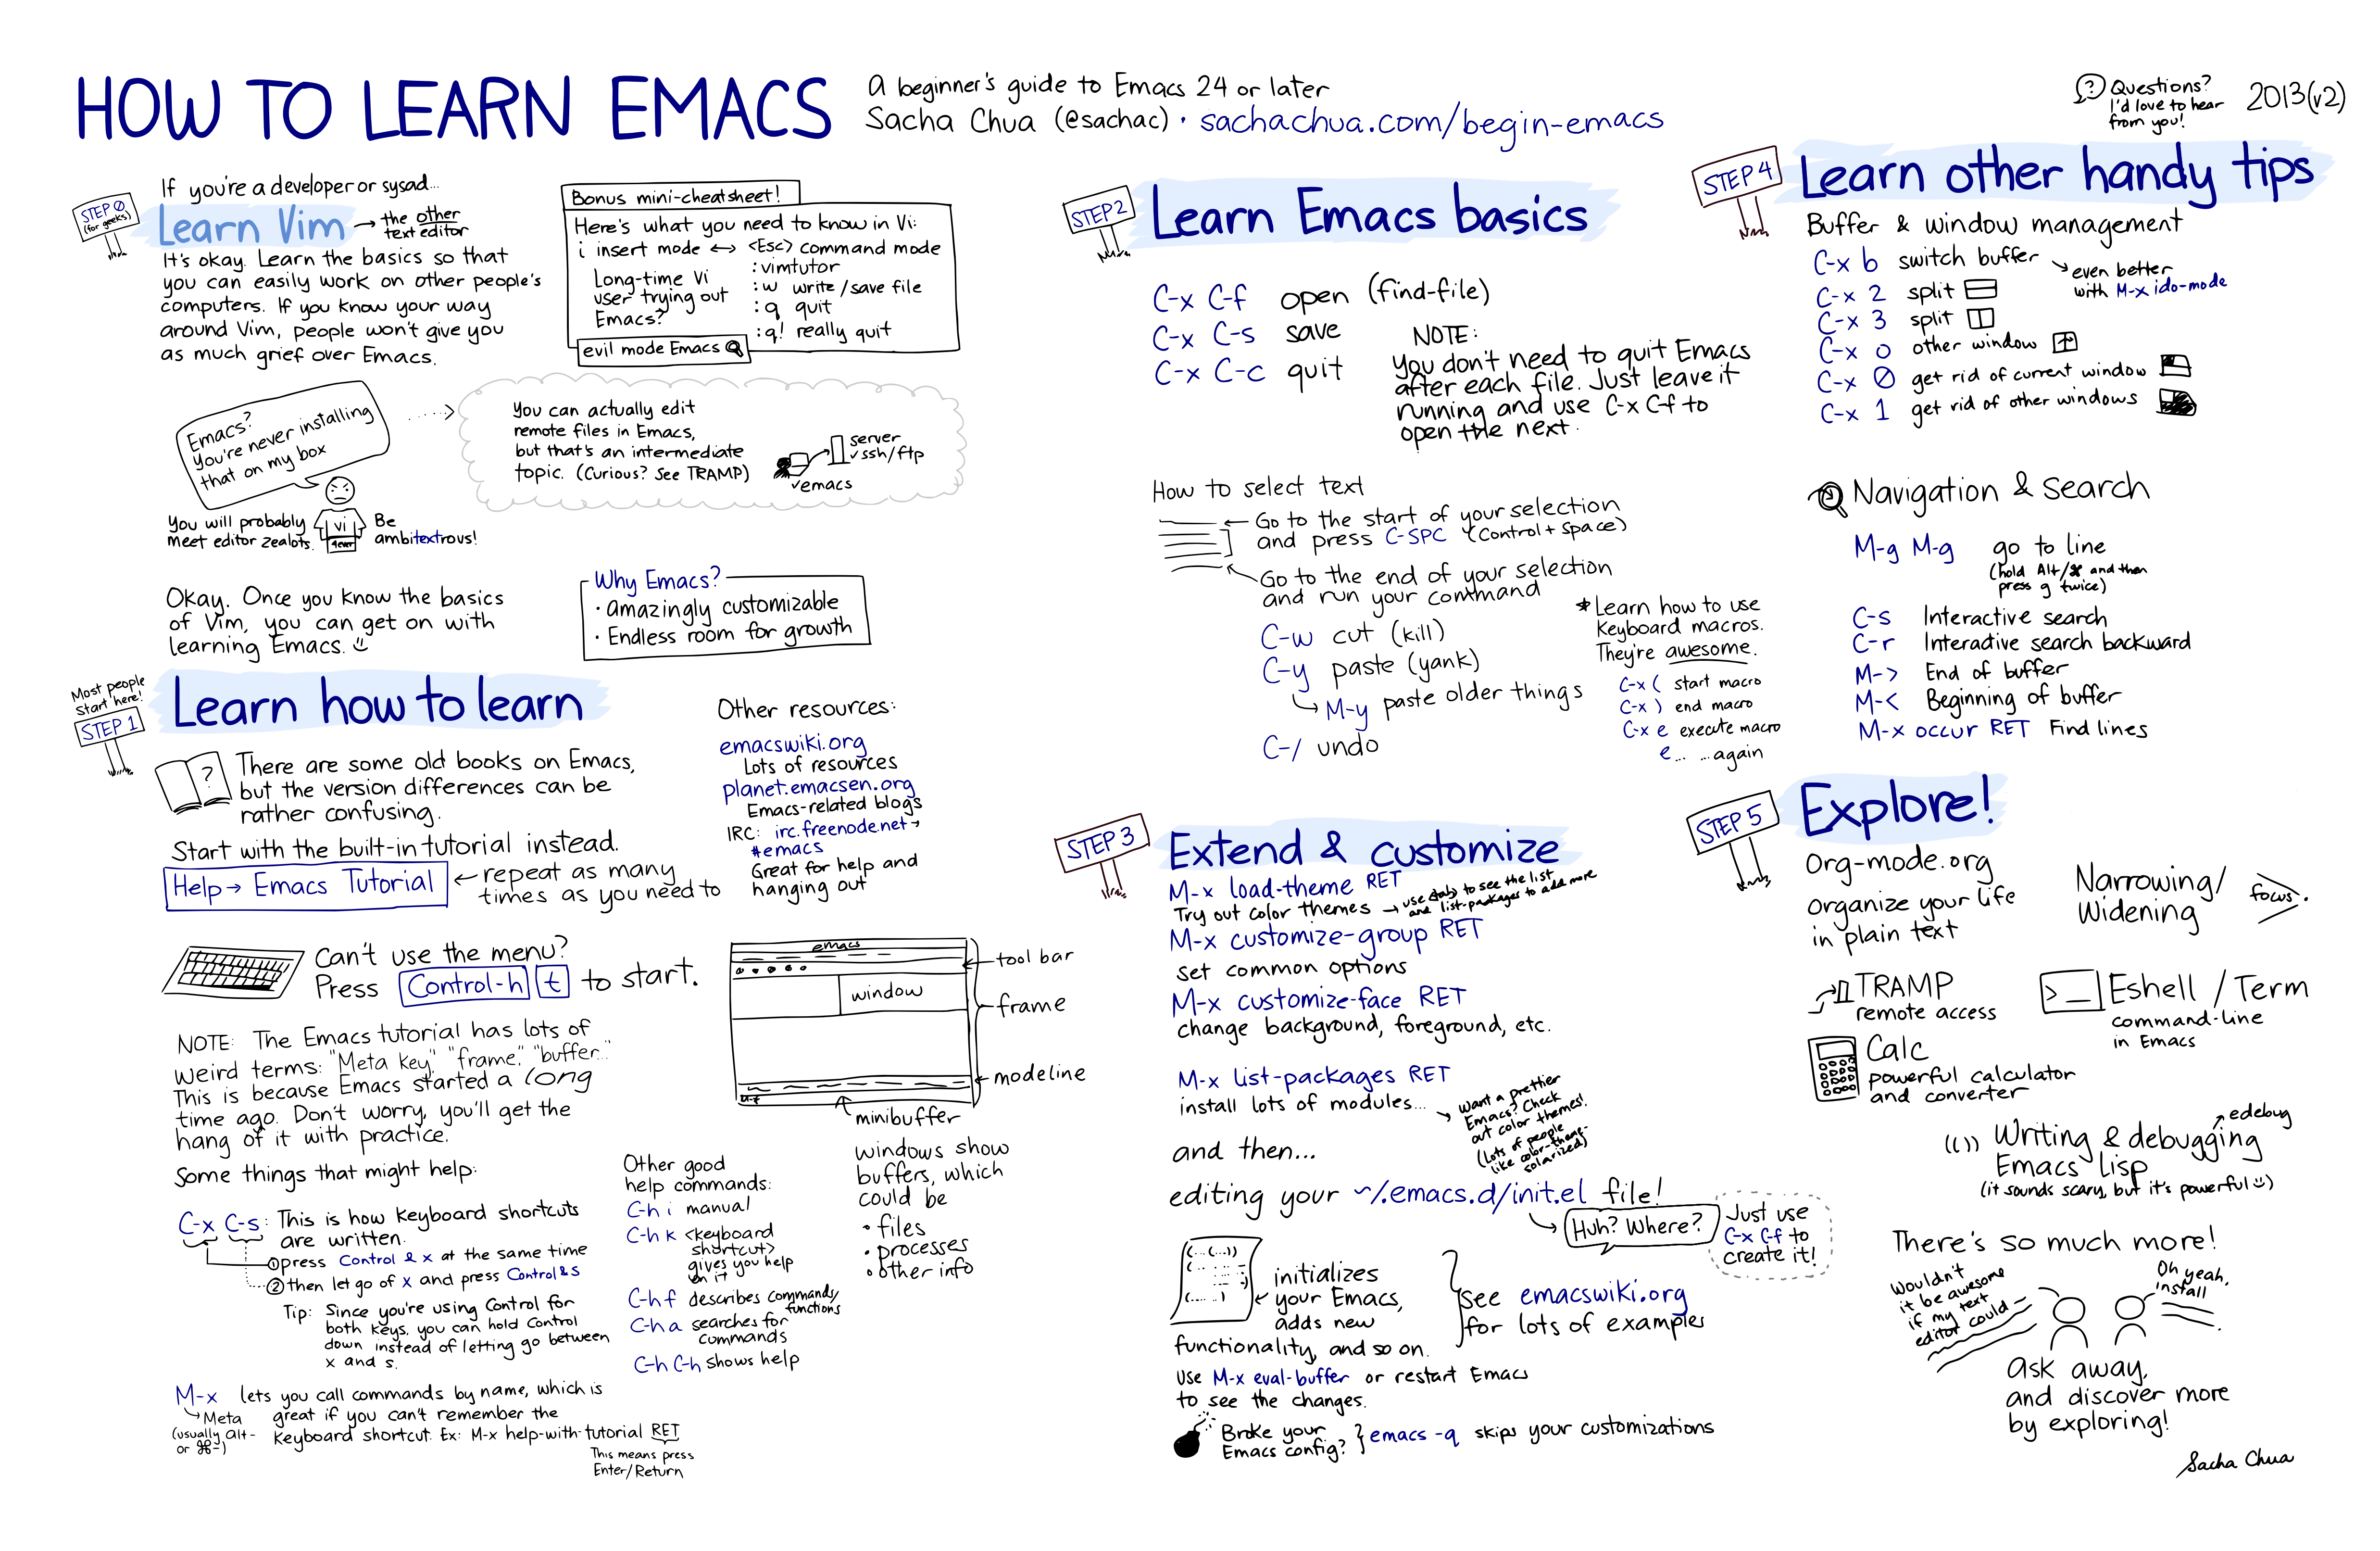 HOW TO LEARN EMACS
A beginner's guide to Emacs 24 or later
Sacha Chua (@sachac) · sachachua.com/begin-emacs
Questions?
I'd love to hear
from you!
2013(v2)
STEP 0
(for geeks)
If you're a developer or sysad...
Learn Vim → the other
text editor
It's okay. Learn the basics so that
you can easily work on other people's
computers. If you know your way
around Vim, people won't give you
as much grief over Emacs.
Bonus mini-cheatsheet!
Here's what you need to know in Vi:
i insert mode ↔ <Esc> command mode
:vimtutor
:w write/save file
:q quit
:q! really quit
Long-time Vi
user trying out
Emacs?
evil mode Emacs
Emacs?
You're never installing
that on my box
You will probably
meet editor zealots.
vi
4ever
Be
ambitextrous!
You can actually edit
remote files in Emacs,
but that's an intermediate
topic. (Curious? See TRAMP)
server
✓ssh/ftp
✓emacs
Okay. Once you know the basics
of Vim, you can get on with
learning Emacs.
Why Emacs?
· amazingly customizable
· Endless room for growth
Most people
start here!
STEP 1
Learn how to learn
?
There are some old books on Emacs,
but the version differences can be
rather confusing.
Start with the built-in tutorial instead.
Help → Emacs Tutorial
← repeat as many
times as you need to
Other resources:
emacswiki.org
Lots of resources
planet.emacsen.org
Emacs-related blogs
IRC: irc.freenode.net →
#emacs
Great for help and
hanging out
Can't use the menu?
Press Control-h t to start.
NOTE: The Emacs tutorial has lots of
weird terms: "Meta key," "frame," "buffer..."
This is because Emacs started a long
time ago. Don't worry, you'll get the
hang of it with practice.
emacs
window
tool bar
frame
modeline
M-x
minibuffer
windows show
buffers, which
could be
· files
· processes
· other info
Some things that might help:
C-x C-s: This is how keyboard shortcuts
are written.
① press Control & x at the same time
② then let go of x and press Control & s
Tip: Since you're using Control for
both keys, you can hold Control
down instead of letting go between
x and s.
M-x lets you call commands by name, which is
great if you can't remember the
keyboard shortcut. Ex: M-x help-with-tutorial RET
Meta
(usually alt-
or ⌘-)
This means press
Enter/Return
Other good
help commands:
C-h i manual
C-h k <keyboard
shortcut>
gives you help
on it
C-h f describes commands/
functions
C-h a searches for
commands
C-h C-h shows help
STEP 2
Learn Emacs basics
C-x C-f open (find-file)
C-x C-s save
C-x C-c quit
NOTE:
You don't need to quit Emacs
after each file. Just leave it
running and use C-x C-f to
open the next.
How to select text
← Go to the start of your selection
and press C-SPC (Control + Space)
Go to the end of your selection
and run your command
C-w cut (kill)
C-y paste (yank)
↳ M-y paste older things
C-/ undo
* Learn how to use
Keyboard macros.
They're awesome.
C-x ( start macro
C-x ) end macro
C-x e execute macro
e... ...again
STEP 3
Extend & customize
M-x load-theme RET
Try out color themes → use <tab> to see the list
and list-packages to add more
M-x customize-group RET
set common options
M-x customize-face RET
change background, foreground, etc.
M-x list-packages RET
install lots of modules...
Want a prettier
Emacs? Check
out color themes!
(Lots of people
like color-theme-
solarized)
and then...
editing your ~/.emacs.d/init.el file!
Huh? Where?
Just use
C-x C-f to
create it!
initializes
your Emacs,
adds new
functionality, and so on.
see emacswiki.org
for lots of examples
use M-x eval-buffer or restart Emacs
to see the changes.
Broke your
Emacs config?
} emacs -q skips your customizations
STEP 4
Learn other handy tips
Buffer & window management
C-x b switch buffer
even better
with M-x ido-mode
C-x 2 split
C-x 3 split
C-x o other window
C-x 0 get rid of current window
C-x 1 get rid of other windows
Navigation & Search
M-g M-g go to line
(hold Alt/⌘ and then
press g twice)
C-s Interactive search
C-r Interactive search backward
M-> End of buffer
M-< Beginning of buffer
M-x occur RET Find lines
STEP 5
Explore!
Org-mode.org
organize your life
in plain text
Narrowing/
Widening
focus.
TRAMP
remote access
>_
Eshell / Term
command-line
in Emacs
Calc
powerful calculator
and converter
(()) Writing & debugging
Emacs Lisp
(it sounds scary, but it's powerful)
edebug
There's so much more!
Wouldn't
it be awesome
if my text
editor could
Oh yeah,
install
ask away,
and discover more
by exploring!
Sacha Chua